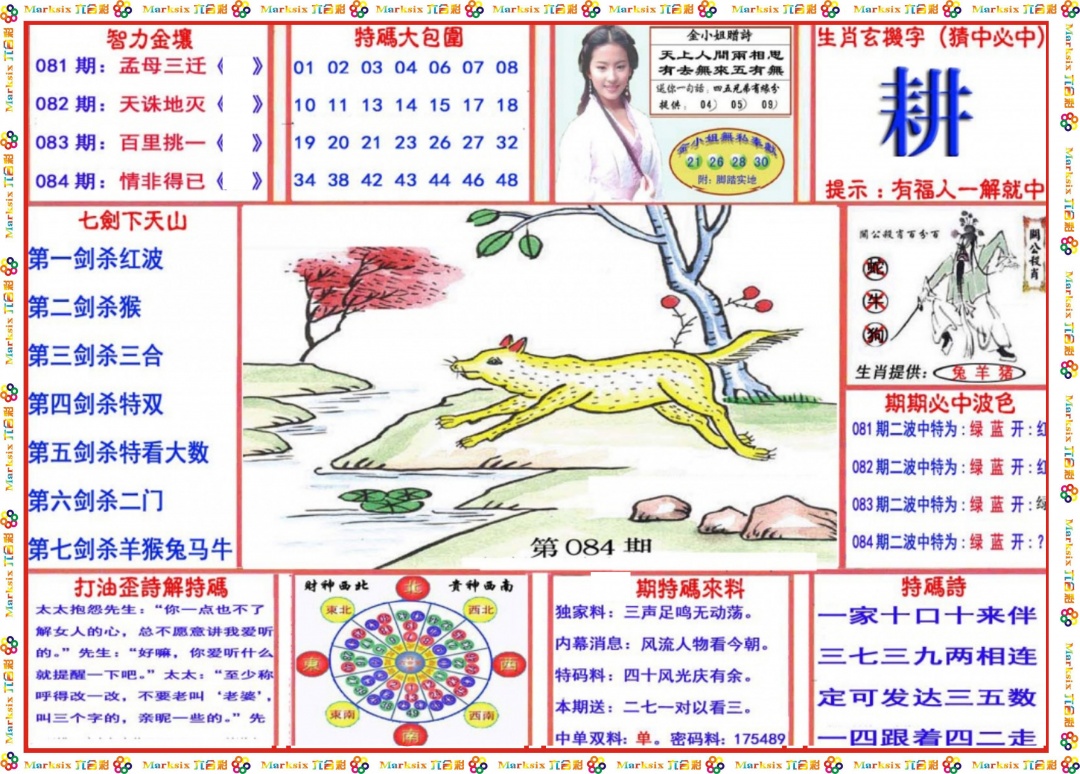 智力金壤
081期：孟母三迁《 》
082期：天诛地灭《 》
083期：百里挑一《 》
084期：情非得已《 》
特碼大包圍
01 02 03 04 06 07 08
10 11 13 14 15 17 18
19 20 21 23 26 27 32
34 38 42 43 44 46 48
金小姐赠詩
天上人間兩相思
有去無來五有無
送你一句话：四五兄弟有缘分
提供：04） 05） 09）
金小姐無私奉獻
21 26 28 30
附：脚踏实地
生肖玄機字（猜中必中）
耕
提示：有福人一解就中
七劍下天山
第一剑杀红波
第二剑杀猴
第三剑杀三合
第四剑杀特双
第五剑杀特看大数
第六剑杀二门
第七剑杀羊猴兔马牛
第084期
關公殺肖百分百
關公殺肖
蛇
牛
狗
生肖提供：兔羊猪
期期必中波色
081期二波中特为：绿 蓝 开：红
082期二波中特为：绿 蓝 开：红
083期二波中特为：绿 蓝 开：绿
084期二波中特为：绿 蓝 开：？
打油歪詩解特碼
太太抱怨先生：“你一点也不了
解女人的心，总不愿意讲我爱听
的。”先生：“好嘛，你爱听什么
就提醒一下吧。”太太：“至少称
呼得改一改，不要老叫‘老婆’，
叫三个字的，亲昵一些的。”先
财神西北
贵神西南
北
東北
西北
東
西
東南
西南
南
期特碼來料
独家料：三声足鸣无动荡。
内幕消息：风流人物看今朝。
特码料：四十风光庆有余。
本期送：二七一对以看三。
中单双料：单。密码料：175489
特碼詩
一家十口十来伴
三七三九两相连
定可发达三五数
一四跟着四二走